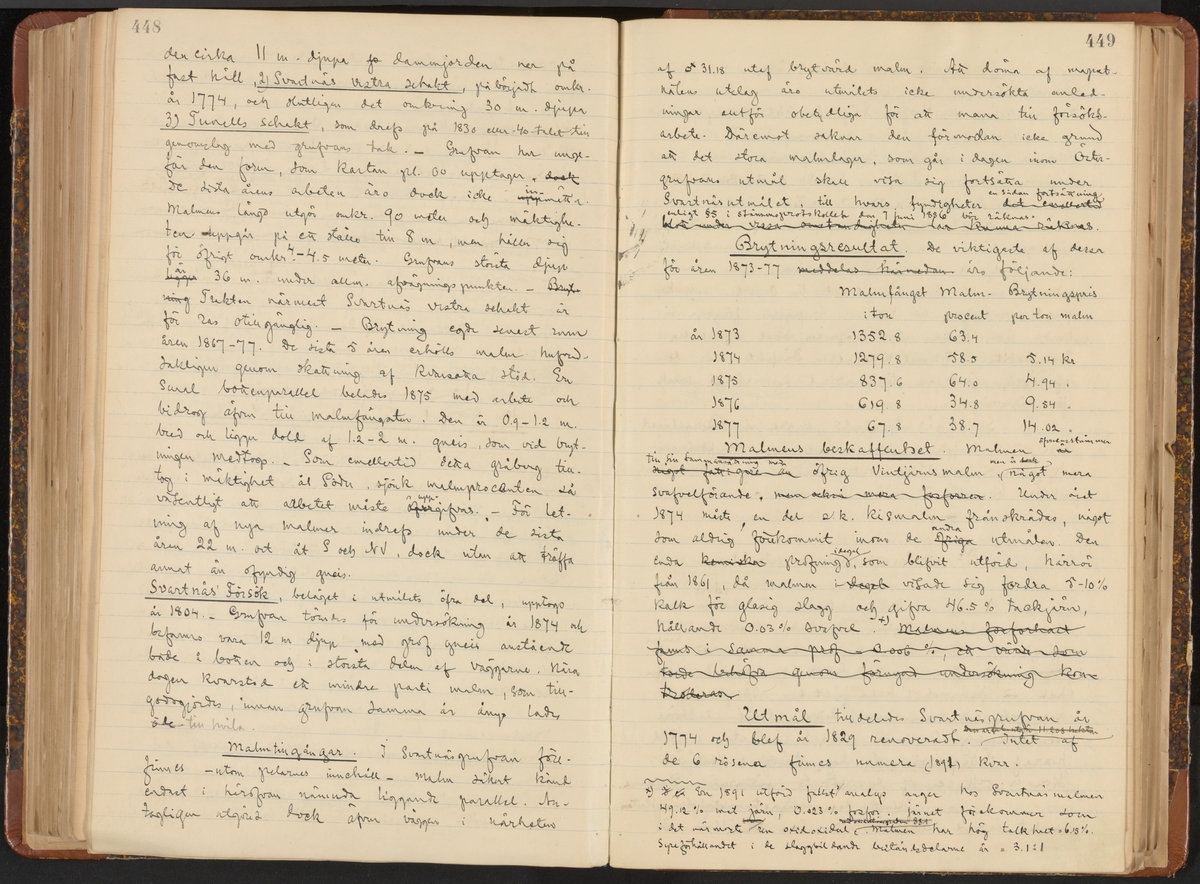 448
den cirka 11 m. djupa jo dammjorden ner på
fast häll, 2) Svartnäs vestra schakt, påbörjadt omkr.
år 1774, och slutligen det omkring 30 m. djupa
3) Tunells schakt, som drefs på 1830 eller 40-talet till
genomslag med grufvans tak. — Grufvan har unge-
fär den form, som kartan pl. 00 upptager, dock
De sista årens arbeten äro dock icke inmätta.
Malmens längd utgör omkr. 90 meter och mäktighe-
ten uppgår på ett ställe till 8 m, men håller sig
för öfrigt omkr. 4–4.5 meter. Grufvans största djup
är 36 m. under allm. afvägningspunkten. — Bryt-
ning Trakten närmast Svartnäs vestra schakt är
för ras otillgänglig. — Brytning egde senast rum
åren 1867–77. De sista 5 åren erhölls malm hufvud-
sakligen genom skattning af kvarsatta stöd. En
smal bottenparallel belades 1875 med arbete och
bidrog äfven till malmfångsten. Den är 0.9–1.2 m.
bred och ligger dold af 1.2–2 m. gneis, som vid bryt-
ningen medtogs. — Som emellertid detta gråberg till-
tog i mäktighet åt Söder, sjönk malmprocenten så
väsentligt att arbetet måste uppgifvas. — För let-
ning af nya malmer indrefs under de sista
åren 22 m. ort åt S och NV, dock utan att träffa
annat än ofyndig gneis.
Svartnäs Försök, beläget i utmålets öfra del, upptogs
år 1804. — Grufvan tömdes för undersökning år 1874 och
befanns vara 12 m djup med grof gneis anstående
både i botten och i största delen af väggarne. Nära
dagen kvarstod ett mindre parti malm, som till-
godogjordes, innan grufvan samma år ånyo lades
öde till hvila.
Malmtillgångar. I Svartnäsgrufvan före-
finnes — utom pelarnes innehåll — malm säkert känd
endast i härofvan nämnda liggande parallel. Na-
turligen utgöras dock äfven väggen i närheten
449
af ♂ 31.18 utaf brytvärd malm. Att döma af magnet-
nålens utslag äro utmålets icke undersökta anled-
ningar eutför obetydliga för att mana till försöks-
arbete. Däremot saknar den förmodan icke grund
att det stora malmlager, som går i dagen inom Öster-
grufvans utmål skall visa sig fortsätta under
en sådan fortsättning
Svartnäsutmålet, till hvars fyndigheter det emellertid
enligt §5 i stämmoprotokollet den 7 juni 1886 bör räknas.
blott under vissa omständigheter lär kunna räknas.
Brytningsresultat. De viktigaste af dessa
för åren 1873–77 meddelas härnedan äro följande:
Malmfånget Malm- Brytningspris
i ton procent per ton malm
år 1873 1352.8 63.4
1874 1279.8 58.5 5.14 kr
1875 837.6 64.0 4.94 "
1876 619.8 34.8 9.54 "
1877 67.8 38.7 14.02 "
Malmens beskaffenhet. Malmen
öfverensstämmer
något
öfrig Vintjärnsmalm men är dock något mera
svafvelförande, men också mera fosforren. Under året
1874 måste en del s.k. kismalm frånskrädas, något
som aldrig förekommit inom de andra öfriga utmålen. Den
enda kemiska profning i degel, som blifvit utförd, härrör
från 1861, då malmen i degel visade sig fordra 5–10%
kalk för glasig slagg och gifva 46.5% tackjärn,
hållande 0.03% svafvel. *) Malmens fosforhalt
fanns i samma prof = 0.006%, ett värde som
torde behöfva genom förnyad undersökning kon-
troleras
Utmål tilldelades Svartnäsgrufvan år
1774 och blef år 1829 renoveradt. Intet af
de 6 rösena finnes numera (1891) kvar.
*) En 1891 utförd fullst. analys anger hos Svartnäsmalmen
49.12% met järn, 0.023% fosfor järnet förekommer som
i det närmaste ren oxidoxidul. Malmen har hög talkhalt = 6.15%.
Syreförhållandet i de slaggbildande beståndsdelarne är = 3.1:1